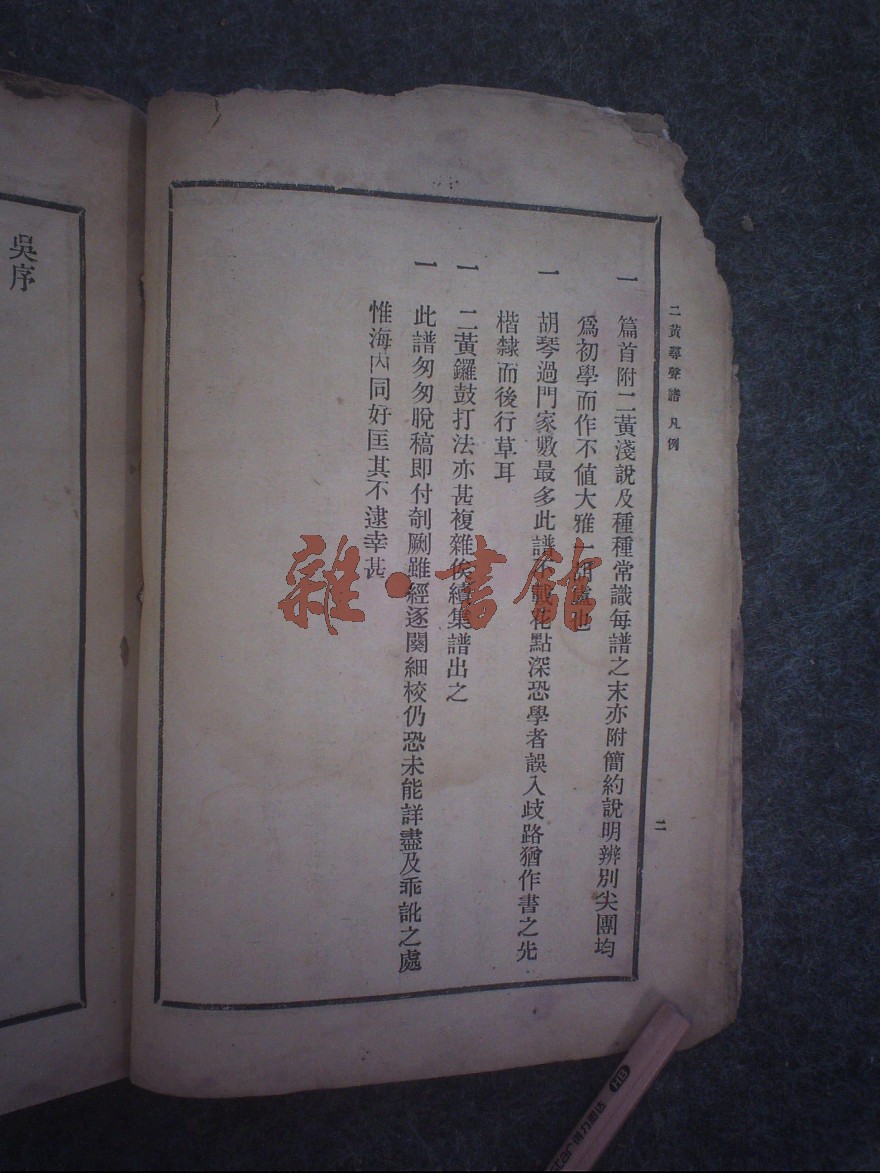 二黃尋聲譜 凡例
二
一 篇首附二黃淺說及種種常識每譜之末亦附簡約說明辨別尖團均
爲初學而作不值大雅一 也
一 胡琴過門家數最多此譜 花點深恐學者誤入歧路猶作書之先
楷隸而後行草耳
一 二黃鑼鼓打法亦甚複雜俟續集譜出之
一 此譜匆匆脫稿即付剞劂雖經逐闋細校仍恐未能詳盡及乖訛之處
惟海內同好匡其不逮幸甚
吳序
雜·書館
HB
得力